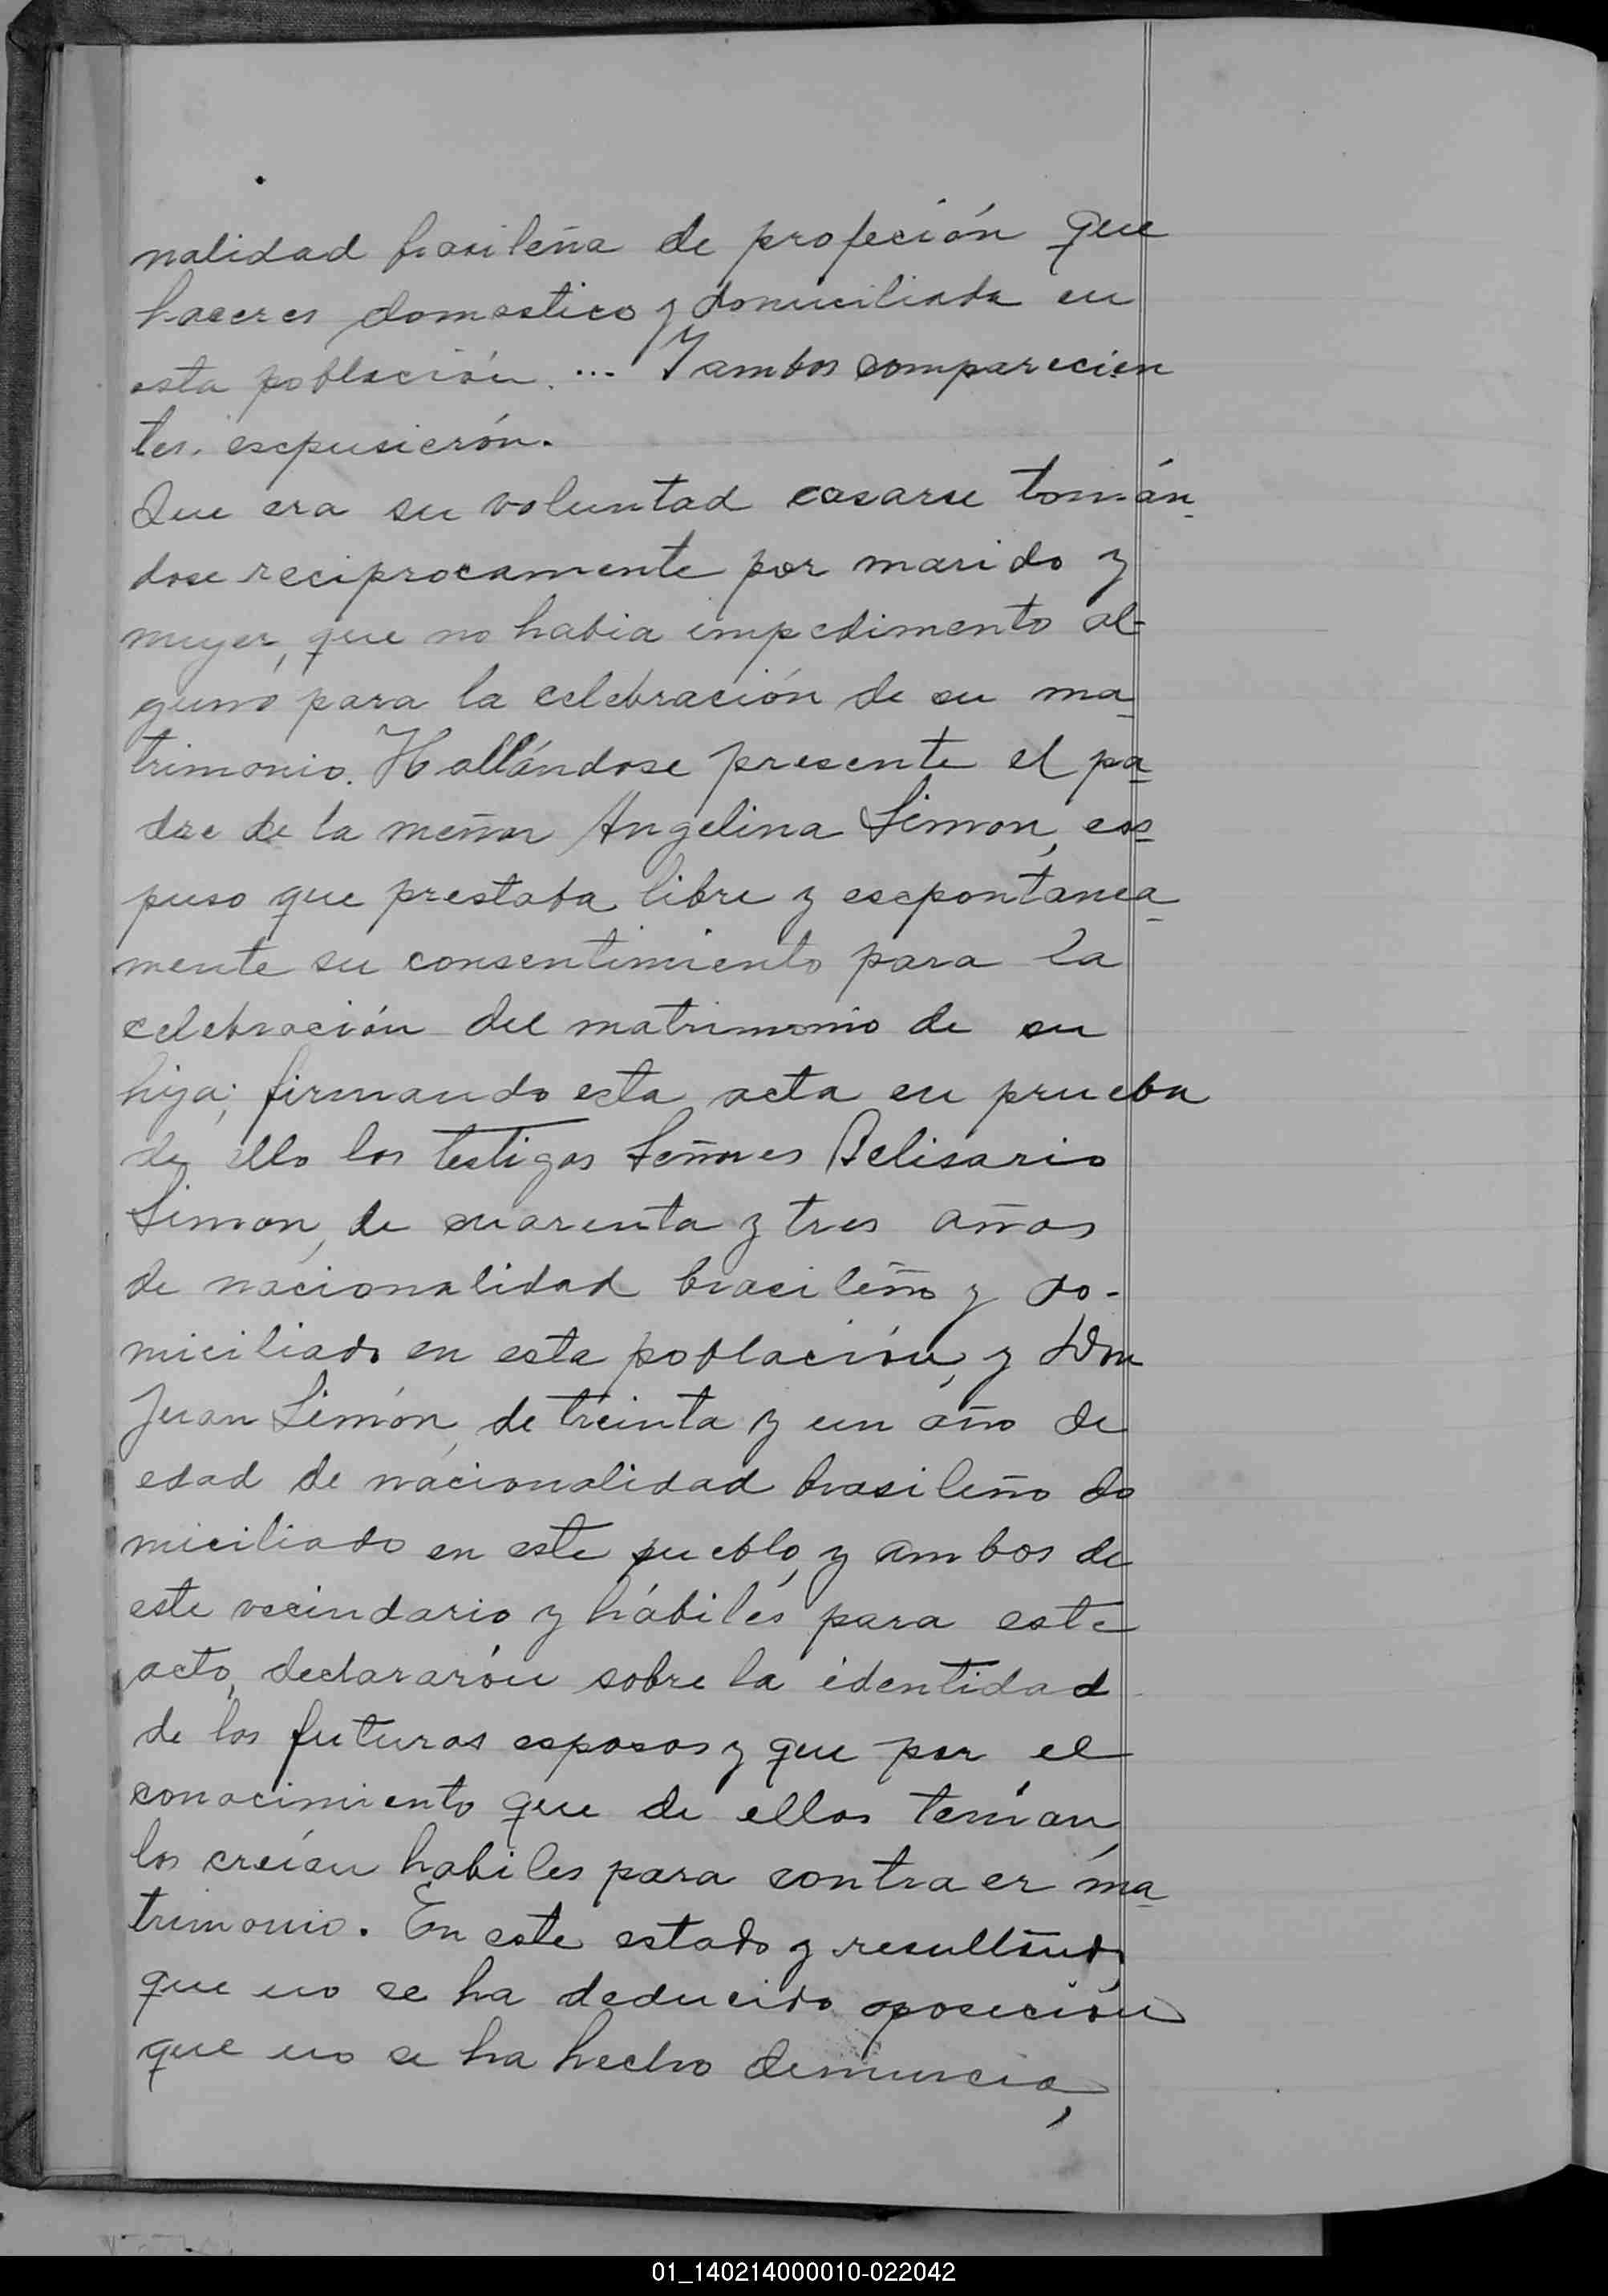 nalidad brasileña de profeción que
haceres domestico y domiciliada en
esta población. ... Y ambos comparecien
tes. escpusierón.
Que era su voluntad casarse tomán-
dose reciprocamente por marido y
mujer, que no habia impedimento al-
guno para la celebración de su ma-
trimonio. Hallándose presente el pa-
dre de la meñor Angelina Simon, es-
puso que prestaba libre y escpontanea-
mente su consentimiento para la
celebración del matrimonio de su
hija; firmando esta acta en prueba
de ello los testigos Señores Belisario
Simon, de cuarenta y tres años
de nacionalidad brasileño y do-
miciliado en esta población, y Don
Juan Simón, de treinta y un año de
edad de nacionalidad brasileño do
miciliado en este pueblo, y ambos de
este vecindario y hábiles para este
acto, declararón sobre la identidad
de los futuros esposos y que por el
conocimiento que de ellos tenían,
los creían habiles para contraer ma-
trimonio. En este estado y resultando
que no se ha deducido oposición
que no se ha hecho denuncia,
01_140214000010-022042